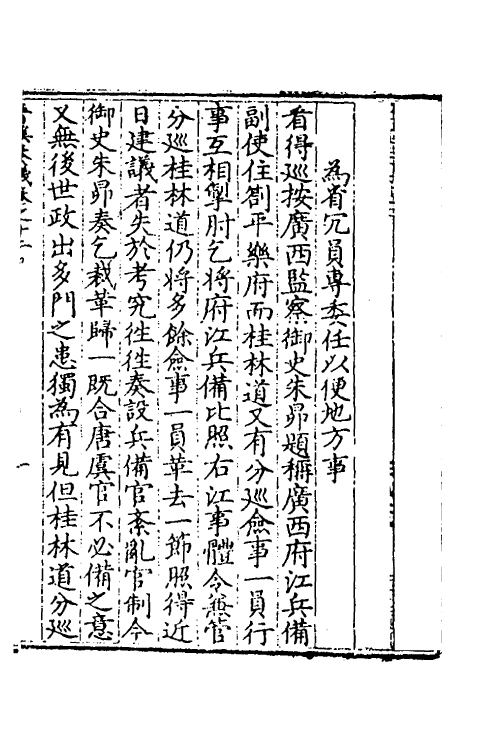 為省冗員專委任以便地方事
看得巡按廣西監察御史朱昴題稱廣西府江兵備
副使住劄平樂府而桂林道又有分巡僉事一員行
事互相掣肘乞將府江兵備比照右江事體令兼管
分巡桂林道仍將多餘僉事一員革去一節照得近
日建議者失於考究徃徃奏設兵備官紊亂官制今
御史朱昴奏乞裁革歸一既合唐虞官不必備之意
又無後世政出多門之患獨為有見但桂林道分巡
一